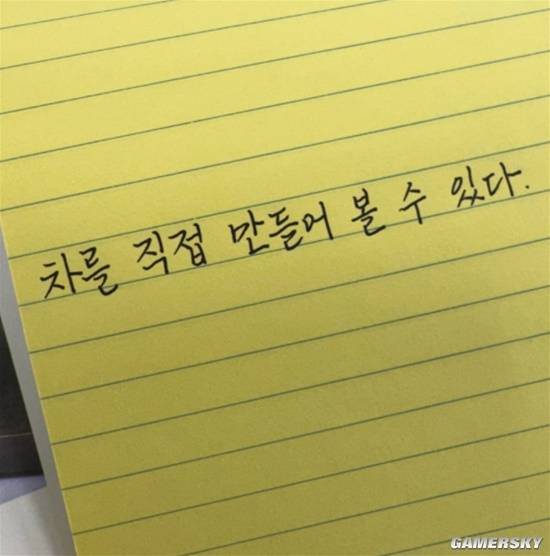 차를 직접 만들어 볼 수 있다.
GAMERSKY